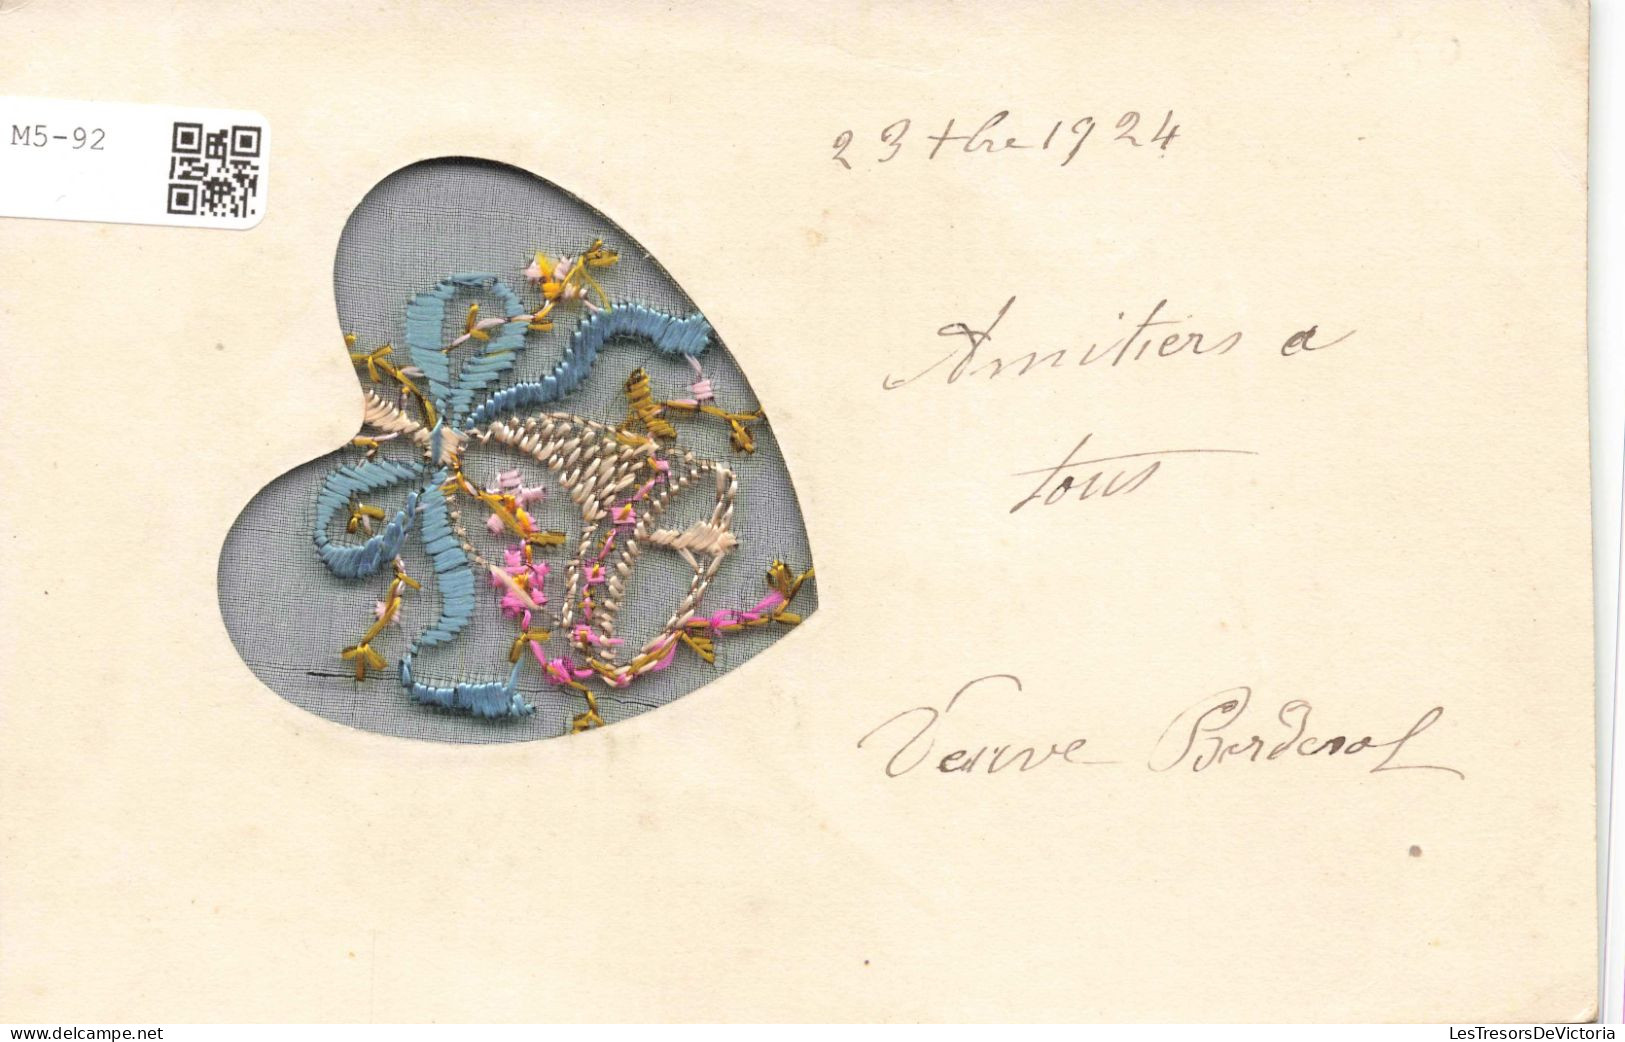 M5-92
23 +bre 1924
Amitiers a
tous
Veuve
delcampe.net
LesTresorsDeVictoria